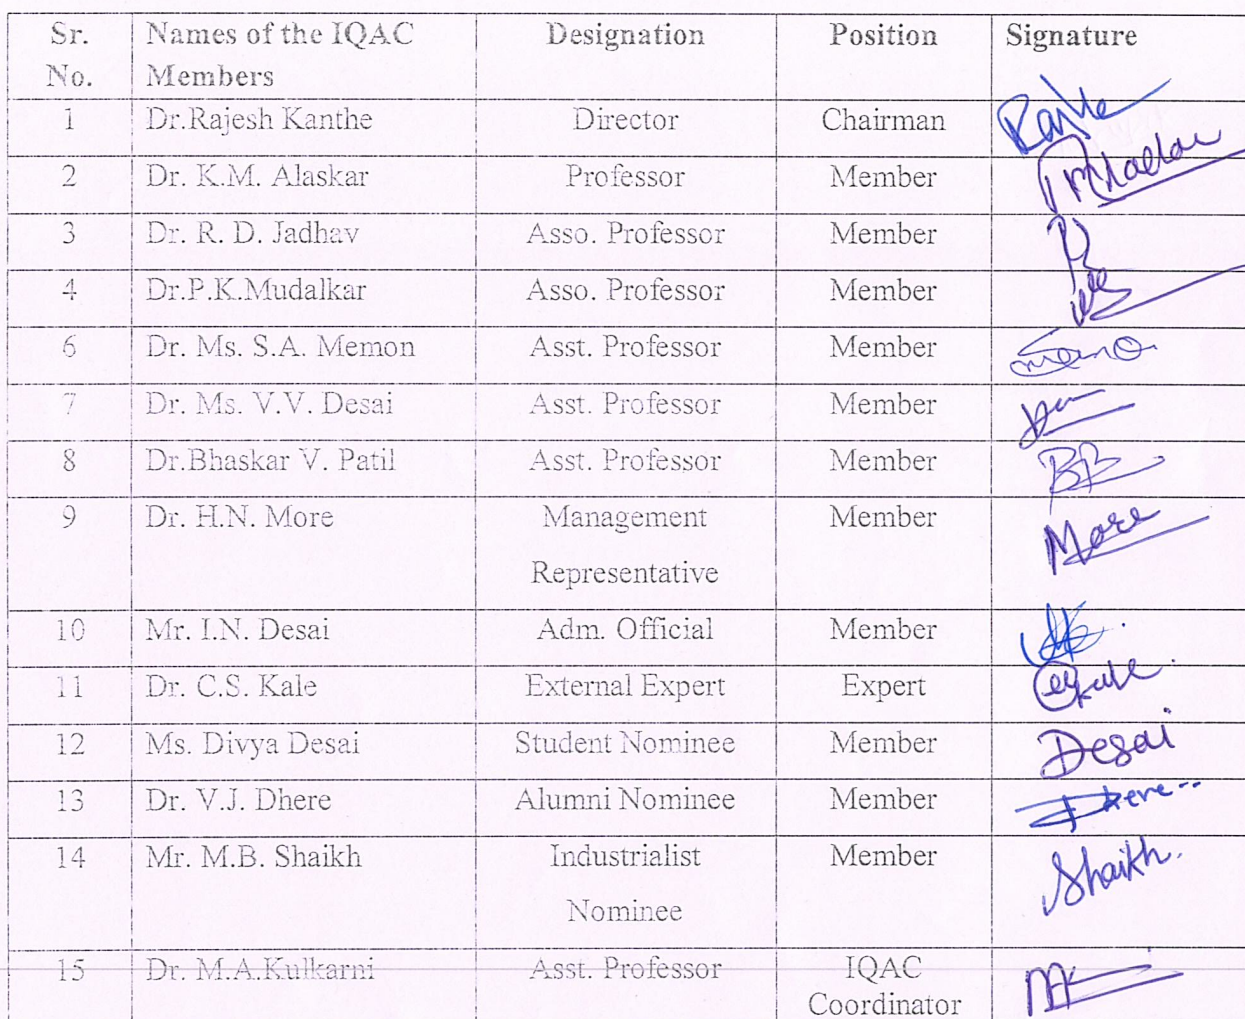 Sr. Names of the IQAC Designation Position Signature
No. Members
1 Dr.Rajesh Kanthe Director Chairman
2 Dr. K.M. Alaskar Professor Member
3 Dr. R. D. Jadhav Asso. Professor Member
4 Dr.P.K.Mudalkar Asso. Professor Member
6 Dr. Ms. S.A. Memon Asst. Professor Member
7 Dr. Ms. V.V. Desai Asst. Professor Member
8 Dr.Bhaskar V. Patil Asst. Professor Member
9 Dr. H.N. More Management Member More
Representative
10 Mr. I.N. Desai Adm. Official Member
11 Dr. C.S. Kale External Expert Expert
12 Ms. Divya Desai Student Nominee Member Desai
13 Dr. V.J. Dhere Alumni Nominee Member Dhere
14 Mr. M.B. Shaikh Industrialist Member Shaikh.
Nominee
15 Dr. M.A.Kulkarni Asst. Professor IQAC
Coordinator